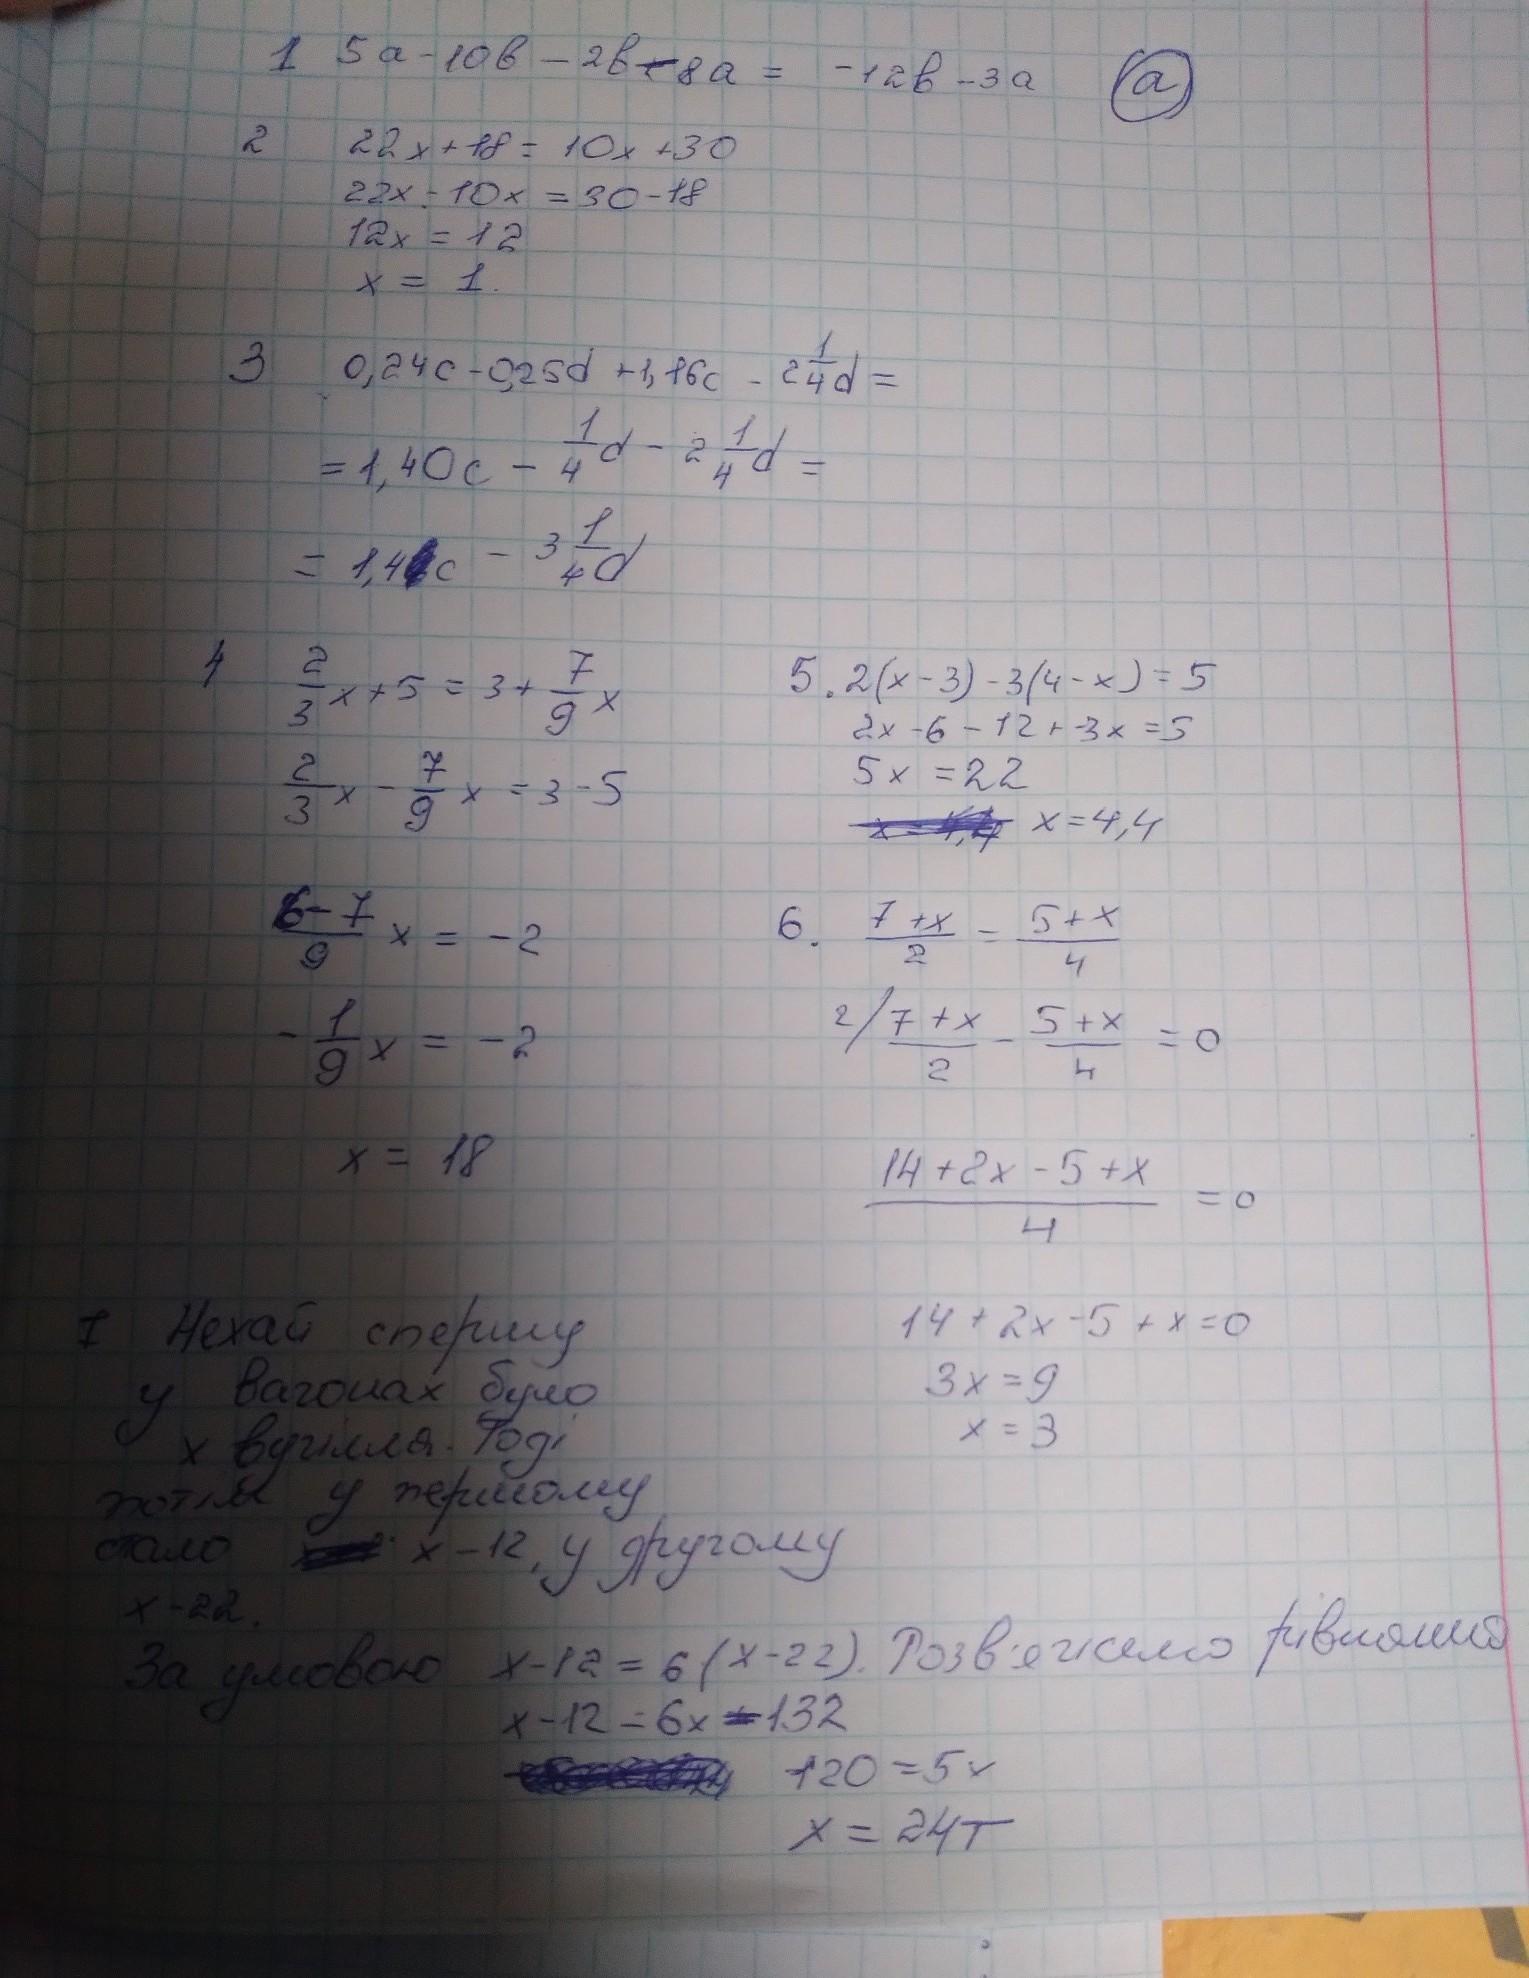 1 5a - 10b - 2b - 8a = -12b - 3a (a)
2 22x + 18 = 10x + 30
22x - 10x = 30 - 18
12x = 12
x = 1.
3 0,24c - 0,25d + 1,16c - 2 1/4 d =
= 1,40c - 1/4 d - 2 1/4 d =
= 1,4c - 3 1/4 d
4 2/3 x + 5 = 3 + 7/9 x
2/3 x - 7/9 x = 3 - 5
(6 - 7)/9 x = -2
- 1/9 x = -2
x = 18
5. 2(x - 3) - 3(4 - x) = 5
2x - 6 - 12 + 3x = 5
5x = 22
x = 4,4
6. (7 + x)/2 = (5 + x)/4
2/ (7 + x)/2 - (5 + x)/4 = 0
(14 + 2x - 5 + x)/4 = 0
14 + 2x - 5 + x = 0
3x = 9
x = 3
7 Нехай спершу
у вагонах було
x вугілля. Тоді
потім у першому
стало x - 12, у другому
x - 22.
За умовою x - 12 = 6(x - 22). Розв'яжемо рівняння
x - 12 = 6x - 132
120 = 5x
x = 24т